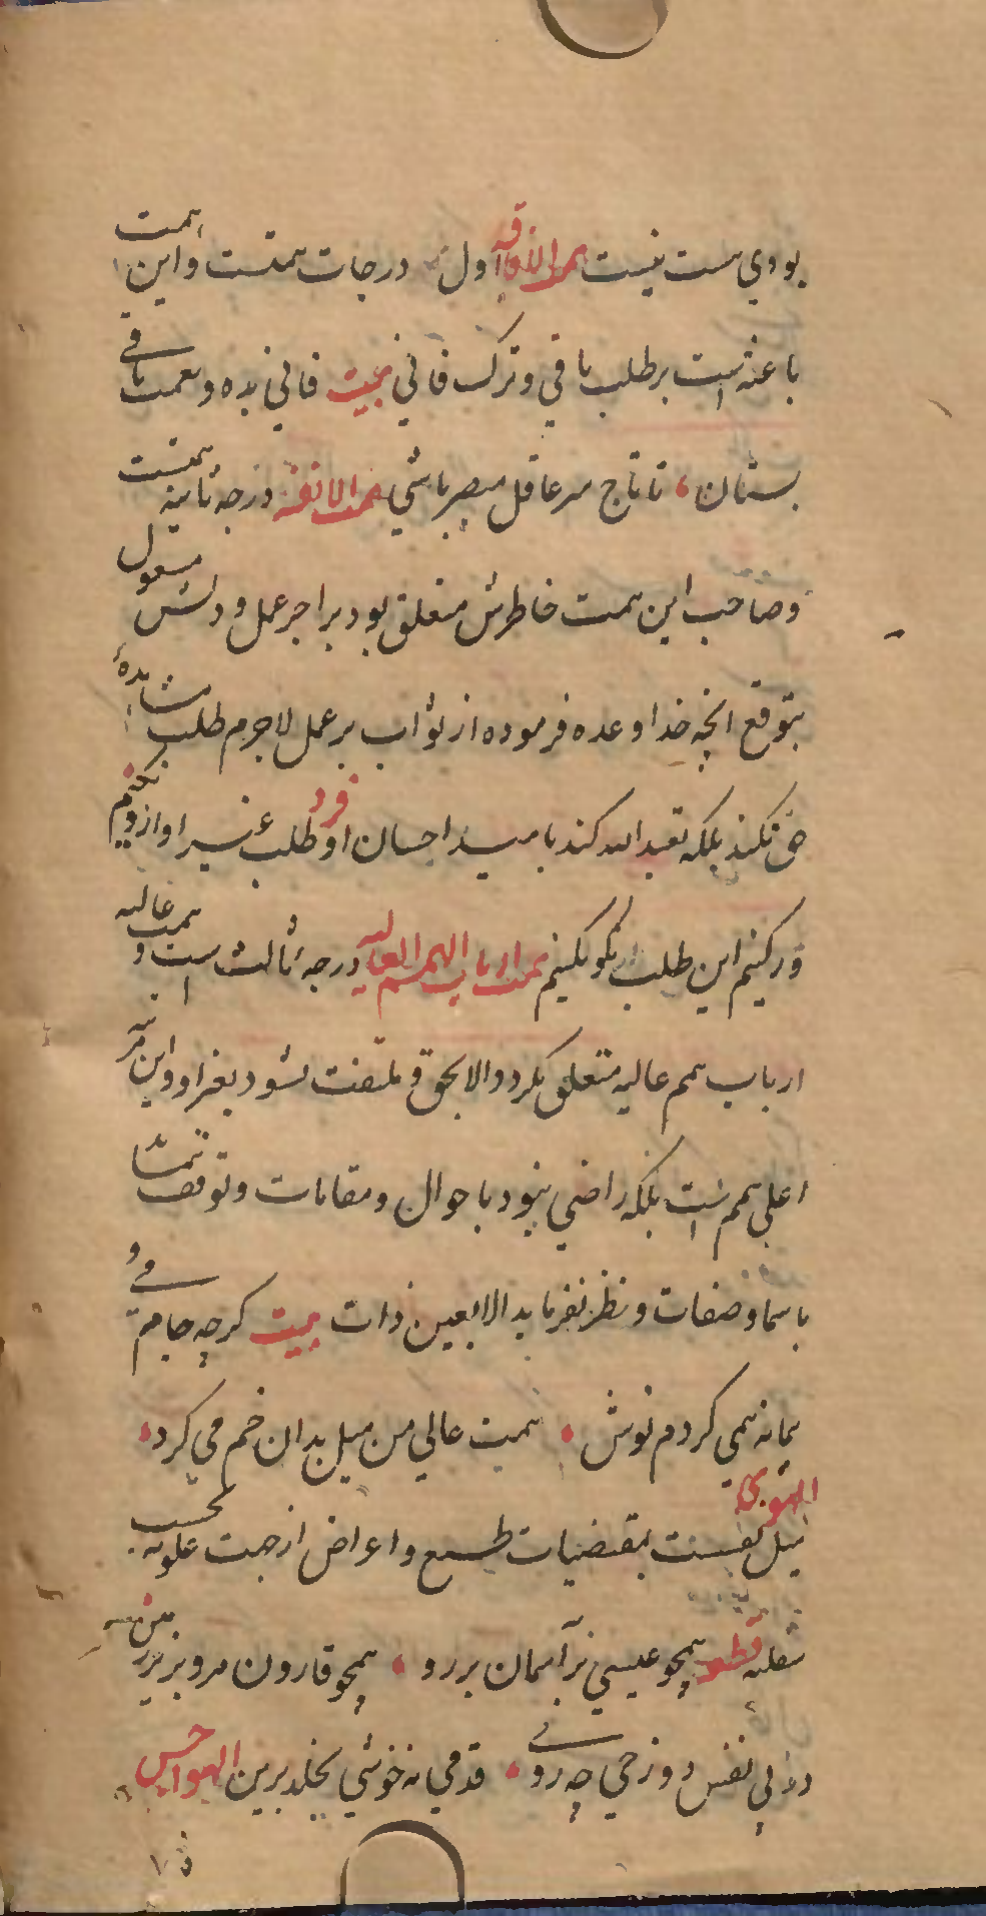 بودی هست نیست همت الافاقه اول درجات همتست و این همت
باعثه است بر طلب باقی و ترک فانی بیت فانی بده و نعمت باقی
بستان تا تاج سر عاقل مبصر باشی همت الانفه درجه ثانیه همتست
و صاحب این همت خاطرش متعلق بود بر اجر عمل و دلش مشغول
بتوقع انچه خدا وعده فرموده از ثواب بر عمل لاجرم طلب مشاهدهٔ
حق نکند بلکه تعبد الله کند بامید احسان او فرد طلب غیر او ازو نکنیم
ور کنیم این طلب نکو نکنیم همت ارباب الهمم العالیه درجه ثالث است و همت عالیه
ارباب همم عالیه متعلق نکردد الا بحق و ملتفت نشود بغیر او و این مرتبه
اعلی همم است بلکه راضی نبود باحوال و مقامات و توقف ننماید
باسما و صفات و نظر نفرماید الا بعین ذات بیت کرچه جام می و
پیمانه همی کردم نوش همت عالی من میل بدان خم می کرد
الهوی میل نفسست بمقتضیات طبع و اعراض از جهت علویه بحسب
سفلیه قطعه همچو عیسی بر آسمان بر رو همچو قارون مرو بزیر زمین
در پی نفس دوزخی چه روی قدمی نه خوشی بخلد برین الهواجس